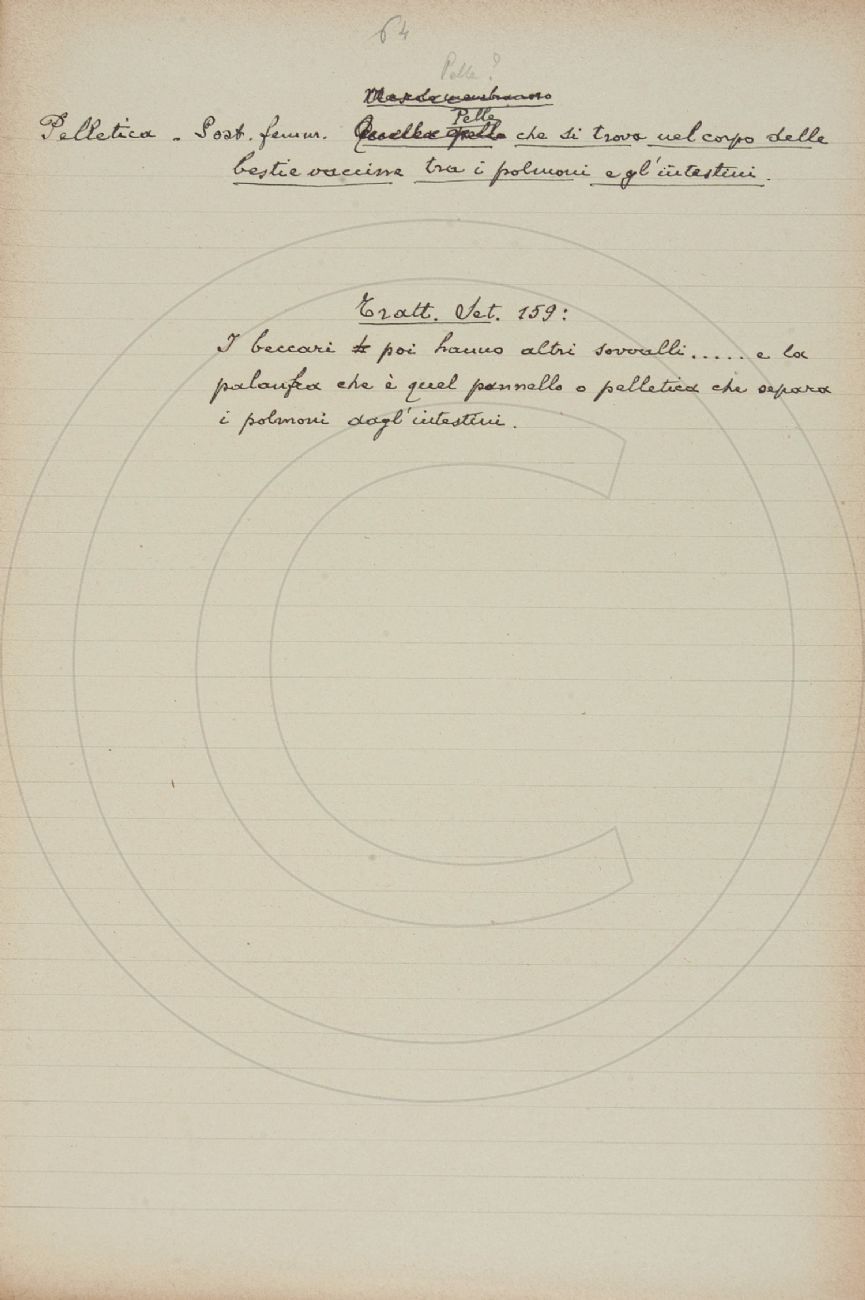 64
Pelle?
Pelle
Pelletica - Sost. femm. Quella pelle che si trova nel corpo delle
bestie vaccine tra i polmoni e gl'intestini.
Tratt. Set. 159:
I beccari poi hanno altri sovvalli..... e la
palanfra che è quel pannello o pelletica che separa
i polmoni dagl'intestini.